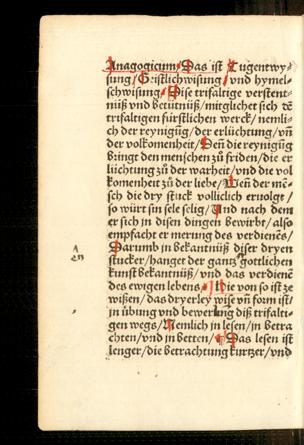 Anagogicum/ Das ist Tugentwy-
sung/ Geistlichwisung/ vnd hymel-
schwisung/ Dise trifaltige verstent-
nüß vnd betütnüß/ mitglichet sich dē
trifaltigen fürstlichen werck/ nemli-
ch der reynigüg/ der erlüchtung/ vn̄
der volkomenheit/ Den die reynigüg
bringt den menschen zu friden/ die er
lüchtung zu der warheit/ vnd die vol
komenheit zu der liebe/ Wen der mē-
sch die dry stuck vollicklich ervolgt/
so würt sin sele selig/ Und nach dem
er sich in disen dingen bewirbt/ also
empfacht er merung des verdienēs/
Darumb in bekantnüß diser dryen
stucker/ hanget der gantz gottlichen
kunst bekantnüß/ vnd das verdienē
des ewigen lebens/ Hie von so ist ze
wißen/ das dryerley wise vn̄ form ist/
in übung vnd bewerung diß trifalti-
gen wegs/ Nemlich in lesen/ in betra-
chten/ vnd in betten/ Das lesen ist
lenger/ die betrachtung kurtzer/ vnd